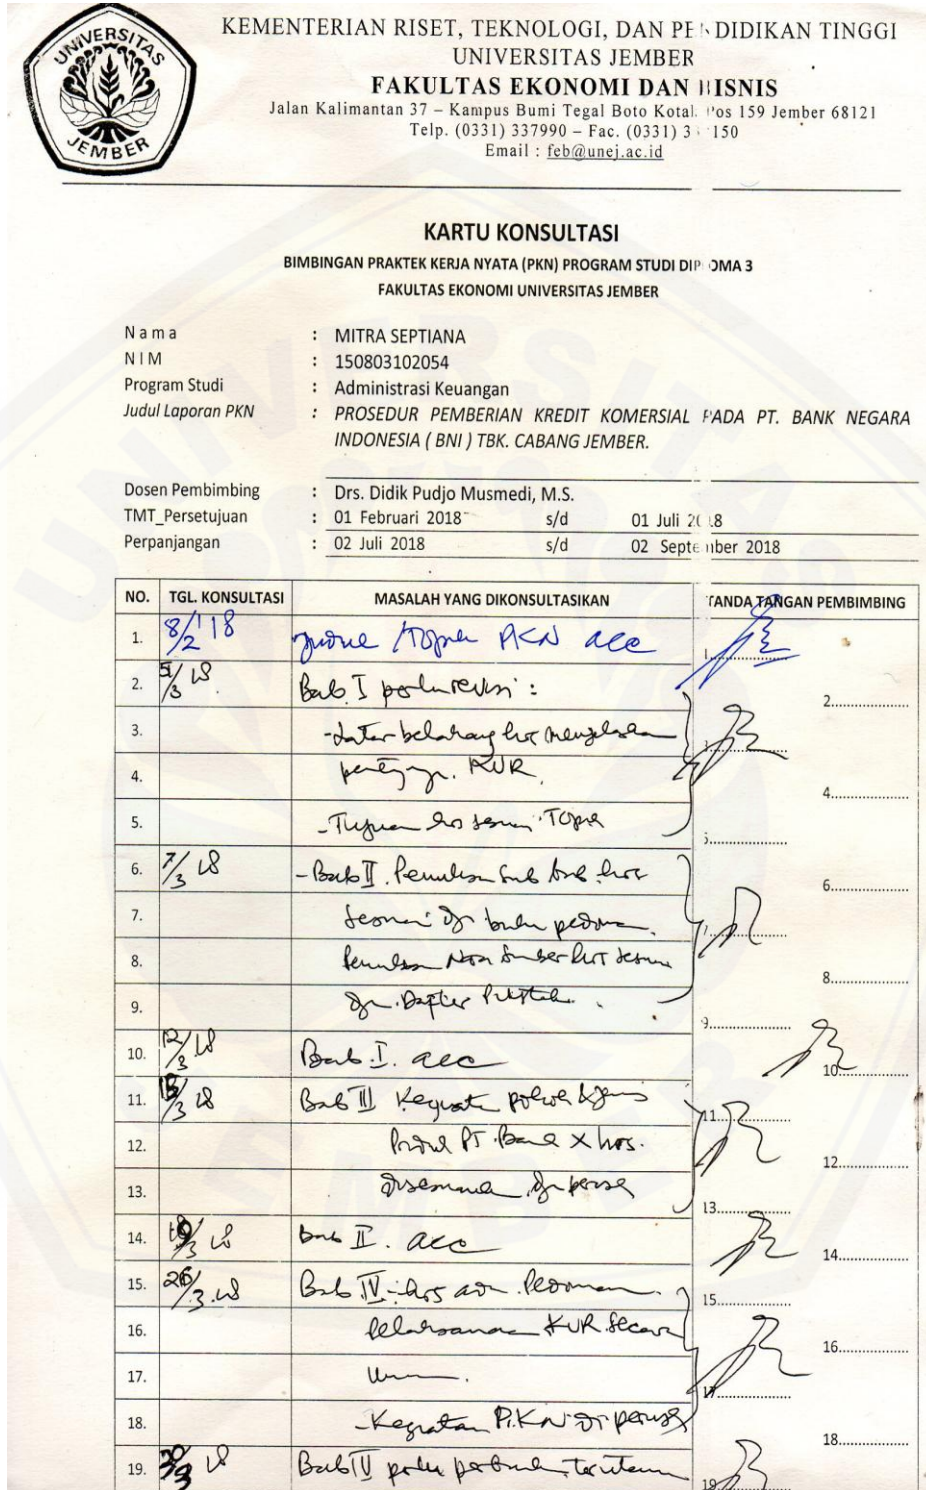 UNIVERSITAS
JEMBER
KEMENTERIAN RISET, TEKNOLOGI, DAN PENDIDIKAN TINGGI
UNIVERSITAS JEMBER
FAKULTAS EKONOMI DAN BISNIS
Jalan Kalimantan 37 – Kampus Bumi Tegal Boto Kotak Pos 159 Jember 68121
Telp. (0331) 337990 – Fac. (0331) 3 150
Email : feb@unej.ac.id
KARTU KONSULTASI
BIMBINGAN PRAKTEK KERJA NYATA (PKN) PROGRAM STUDI DIPLOMA 3
FAKULTAS EKONOMI UNIVERSITAS JEMBER
Nama : MITRA SEPTIANA
NIM : 150803102054
Program Studi : Administrasi Keuangan
Judul Laporan PKN : PROSEDUR PEMBERIAN KREDIT KOMERSIAL PADA PT. BANK NEGARA
INDONESIA ( BNI ) TBK. CABANG JEMBER.
Dosen Pembimbing : Drs. Didik Pudjo Musmedi, M.S.
TMT_Persetujuan : 01 Februari 2018 s/d 01 Juli 2018
Perpanjangan : 02 Juli 2018 s/d 02 September 2018
NO. TGL. KONSULTASI MASALAH YANG DIKONSULTASIKAN TANDA TANGAN PEMBIMBING
1. 8/2 '18 PKN acc 1
2. 5/3 18 Bab I perlu revisi : 2
3. - Latar belakang hrs menjelaskan
4. KUR 4
5. - Tujuan hrs sesuai Topik 5
6. 7/3 18 - Bab II. Penulisan Sub bab hrs 6
7. sesuai dg buku pedoman. 7
8. Penulisan sumber hrs sesuai 8
9. dg. Daftar Pustaka. 9
10. 12/3 18 Bab. I. acc 10
11. /3 18 Bab III Kegiatan pokok 11
12. PT. Bank X hrs. 12
13. disesuaikan dg 13
14. /3 18 Bab II. acc 14
15. 26/3.18 Bab IV - hrs ada Pedoman 15
16. Pelaksanaan KUR secara 16
17. Umum. 17
18. - Kegiatan PKN di 18
19. 18 Bab IV perlu terutama 19